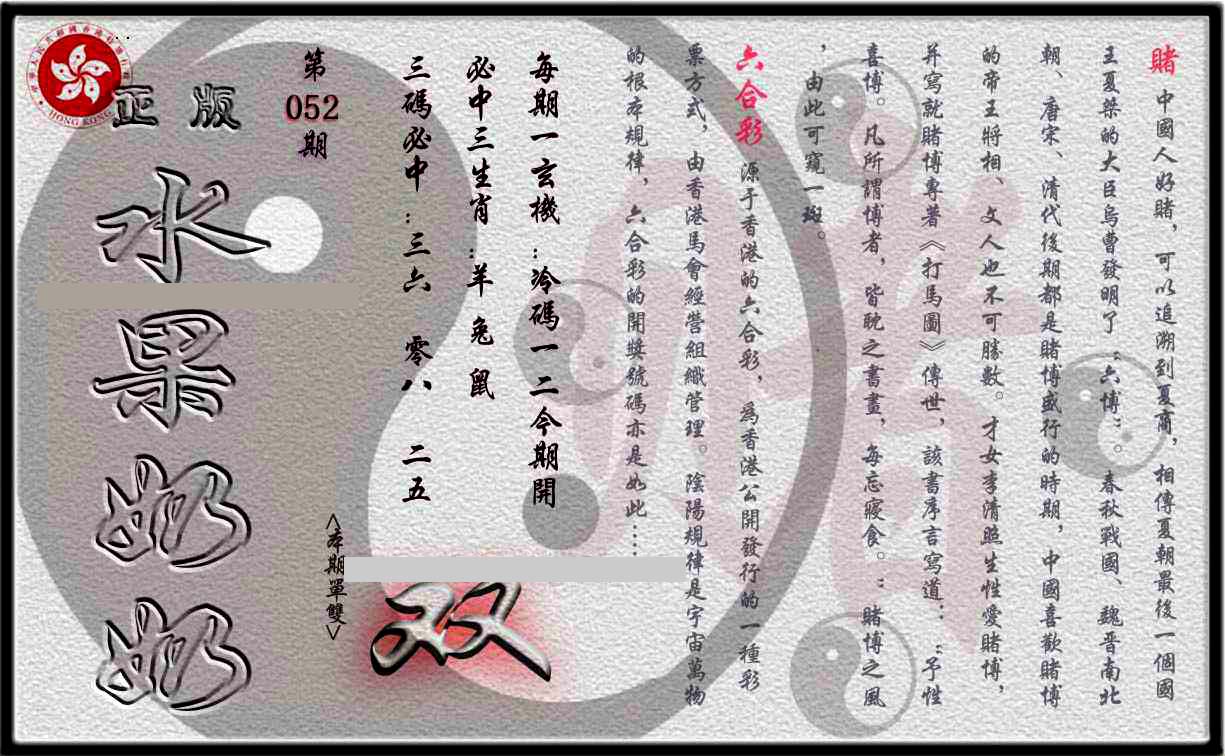 賭 中國人好賭，可以追溯到夏商，相傳夏朝最後一個國
王夏桀的大臣烏曹發明了“六博”。春秋戰國、魏晉南北
朝、唐宋、清代後期都是賭博盛行的時期，中國喜歡賭博
的帝王將相、文人也不可勝數。才女李清照生性愛賭博，
并寫就賭博專著《打馬圖》傳世，該書序言寫道：“予性
喜博。凡所謂博者，皆耽之書畫，每忘寢食。”賭博之風
，由此可窺一斑。
六合彩 源于香港的六合彩，為香港公開發行的一種彩
票方式，由香港馬會經營組織管理。陰陽規律是宇宙萬物
的根本規律，六合彩的開獎號碼亦是如此……
每期一玄機：冷碼一二今期開
必中三生肖：羊 兔 鼠
三碼必中：三六 零八 二五
<本期單雙>
双
第
052
期
正版
水果奶奶
HONG KONG